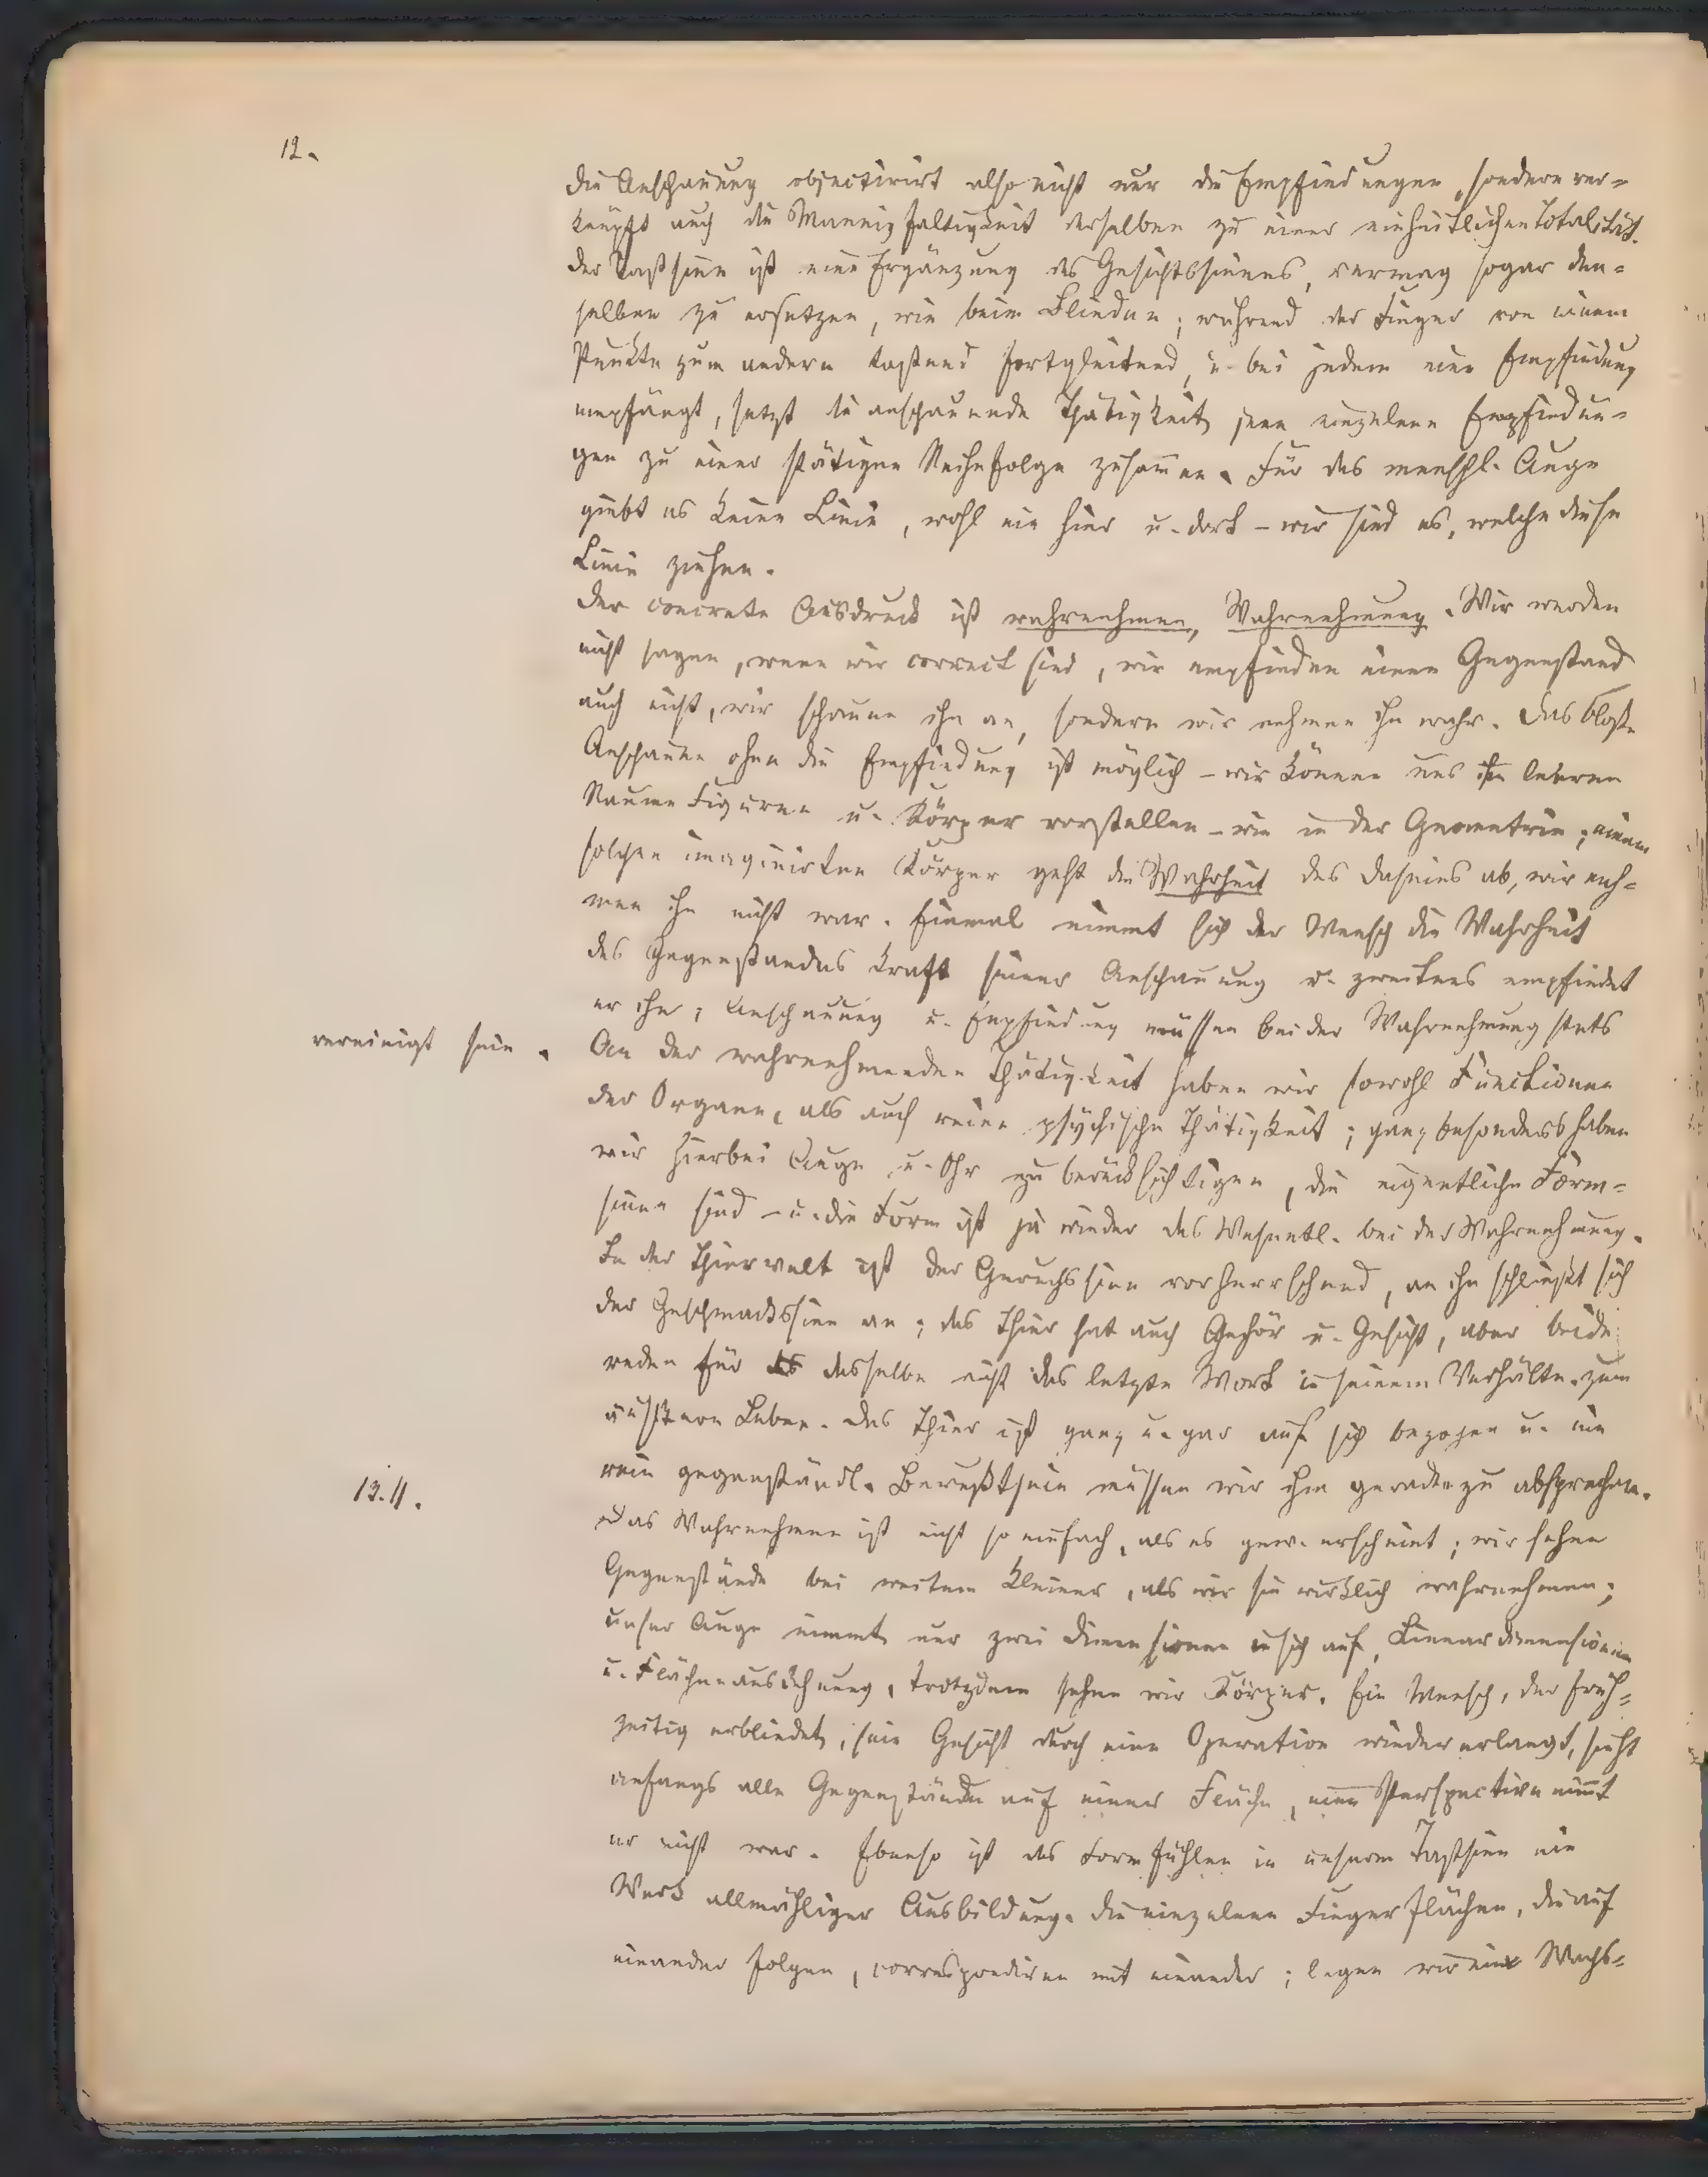 12.
Die Anschauung objectivirt also nicht nur die Empfindungen, sondern ver=
knüpft auch die Mannigfaltigkeit derselben zu einer einheitlichen Totalität.
Der Tastsinn ist eine Ergänzung des Gesichtssinnes, vermag sogar den=
selben zu ersetzen, wie beim Blinden; während der Finger von einem
Punkte zum andern tastend fortgleitend, u. bei jedem eine Empfindung
empfängt, setzt die anschauende Thätigkeit jene einzelnen Empfindun=
gen zu einer stätigen Reihefolge zusammen. Für das menschl. Auge
giebt es keine Linie, wohl ein hier u. dort – wir sind es, welche diese
Linie ziehen.
Der concrete Ausdruck ist wahrnehmen, Wahrnehmung. Wir werden
nicht sagen, wenn wir correct sind, wir empfinden einen Gegenstand
auch nicht, wir schauen ihn an, sondern wir nehmen ihn wahr. Das bloße
Anschauen ohne die Empfindung ist möglich – wir können uns im leeren
Raume Figuren u. Körper vorstellen – wie in der Geometrie; einem
solchen imaginirten Körper geht die Wahrheit des Daseins ab, wir neh=
men ihn nicht war. Einmal nimmt sich der Mensch die Wahrheit
des Gegenstandes kraft seiner Anschauung u. zweitens empfindet
er ihn; Anschauung u. Empfindung müssen bei der Wahrnehmung stets
vereinigt sein.
An der wahrnehmenden Thätigkeit haben wir sowohl Functionen
der Organe, als auch reine psychische Thätigkeit; ganz besonders haben
wir hierbei Auge u. Ohr zu berücksichtigen, die eigentliche Form=
sinne sind – u. die Form ist ja wieder das Wesentl. bei der Wahrnehmung.
In der Thierwelt ist der Geruchssinn vorherrschend, an ihn schließt sich
der Geschmackssinn an; das Thier hat auch Gehör u. Gesicht, aber beide
reden für dasselbe nicht das letzte Wort in seinem Verhältn. zum
äußeren Leben. Das Thier ist ganz u. gar auf sich bezogen u. ein
rein gegenständl. Bewußtsein müssen wir ihm geradezu absprechen.
13.11.
Das Wahrnehmen ist nicht so einfach, als es gew. erscheint; wir sehen
Gegenstände bei weitem kleiner, als wir sie wirklich wahrnehmen;
unser Auge nimmt nur zwei Dimensionen in sich auf, Lineardimensionen
u. Flächenausdehnung, trotzdem sehen wir Körper. Ein Mensch, der früh=
zeitig erblindet, sein Gesicht durch eine Operation wiedererlangt, sieht
anfangs alle Gegenstände auf einer Fläche, eine Perspective nimmt
er nicht war. Ebenso ist das Formfühlen in unserm Tastsinn ein
Werk allmähliger Ausbildung. Die einzelnen Fingerflächen, die auf
einander folgen, correspondiren mit einander; legen wir eine Wachs=